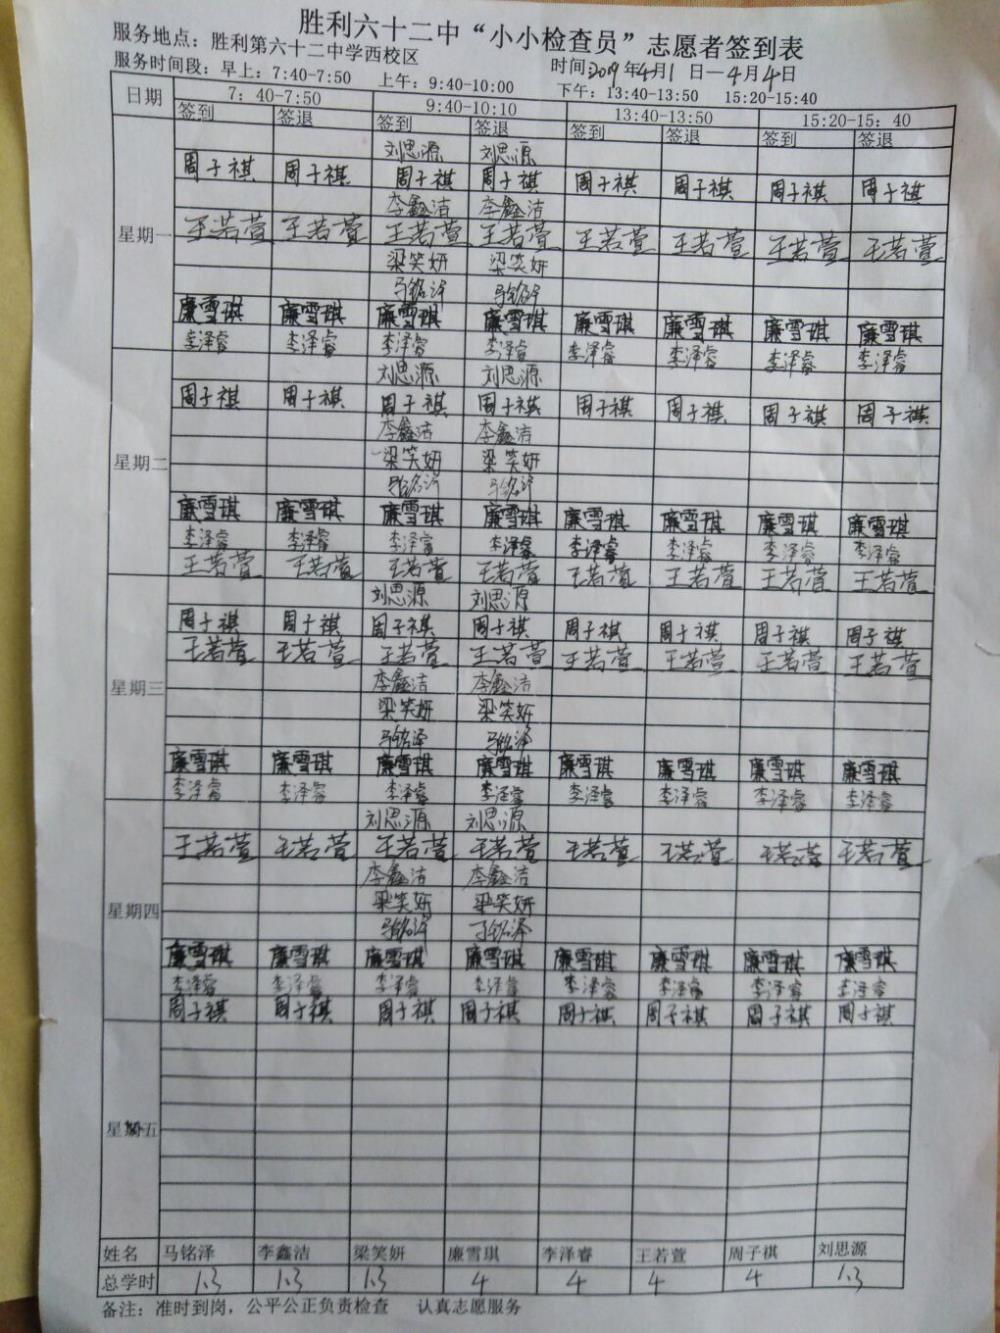 胜利六十二中“小小检查员”志愿者签到表
服务地点：胜利第六十二中学西校区 时间：2019年4月1日—4月4日
服务时间段：早上：7:40-7:50 上午：9:40-10:00 下午：13:40-13:50 15:20-15:40
日期 7：40-7:50 9:40-10:10 13:40-13:50 15:20-15：40
签到 签退 签到 签退 签到 签退 签到 签退
刘思源 刘思源
周子祺 周子祺 周子祺 周子祺 周子祺 周子祺 周子祺 周子祺
李鑫洁 李鑫洁
星期一 王若萱 王若萱 王若萱 王若萱 王若萱 王若萱 王若萱 王若萱
梁笑妍 梁笑妍
马铭泽 马铭泽
廉雪琪 廉雪琪 廉雪琪 廉雪琪 廉雪琪 廉雪琪 廉雪琪 廉雪琪
李泽睿 李泽睿 李泽睿 李泽睿 李泽睿 李泽睿 李泽睿 李泽睿
刘思源 刘思源
周子祺 周子祺 周子祺 周子祺 周子祺 周子祺 周子祺 周子祺
李鑫洁 李鑫洁
星期二 梁笑妍 梁笑妍
马铭泽 马铭泽
廉雪琪 廉雪琪 廉雪琪 廉雪琪 廉雪琪 廉雪琪 廉雪琪 廉雪琪
李泽睿 李泽睿 李泽睿 李泽睿 李泽睿 李泽睿 李泽睿 李泽睿
王若萱 王若萱 王若萱 王若萱 王若萱 王若萱 王若萱 王若萱
刘思源 刘思源
周子祺 周子祺 周子祺 周子祺 周子祺 周子祺 周子祺 周子祺
王若萱 王若萱 王若萱 王若萱 王若萱 王若萱 王若萱 王若萱
星期三 李鑫洁 李鑫洁
梁笑妍 梁笑妍
马铭泽 马铭泽
廉雪琪 廉雪琪 廉雪琪 廉雪琪 廉雪琪 廉雪琪 廉雪琪 廉雪琪
李泽睿 李泽睿 李泽睿 李泽睿 李泽睿 李泽睿 李泽睿 李泽睿
刘思源 刘思源
王若萱 王若萱 王若萱 王若萱 王若萱 王若萱 王若萱 王若萱
李鑫洁 李鑫洁
星期四 梁笑妍 梁笑妍
马铭泽 马铭泽
廉雪琪 廉雪琪 廉雪琪 廉雪琪 廉雪琪 廉雪琪 廉雪琪 廉雪琪
李泽睿 李泽睿 李泽睿 李泽睿 李泽睿 李泽睿 李泽睿 李泽睿
周子祺 周子祺 周子祺 周子祺 周子祺 周子祺 周子祺 周子祺
星期五
姓名 马铭泽 李鑫洁 梁笑妍 廉雪琪 李泽睿 王若萱 周子祺 刘思源
总学时 1.3 1.3 1.3 4 4 4 4 1.3
备注：准时到岗，公平公正负责检查 认真志愿服务